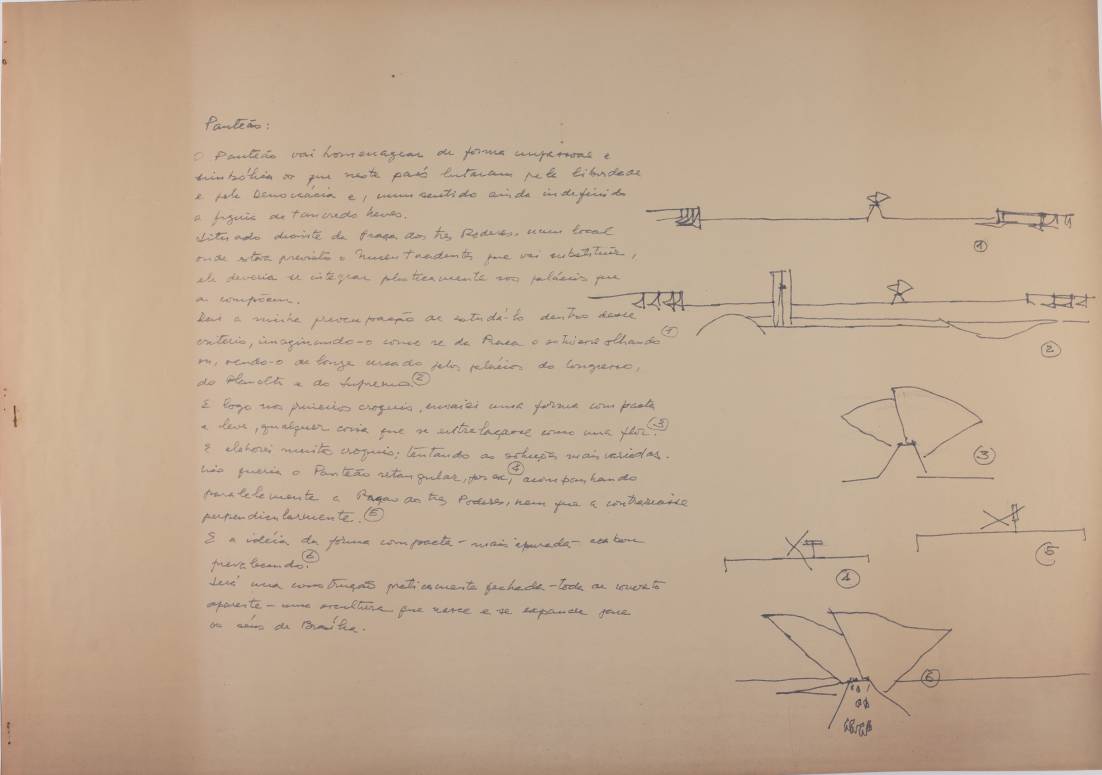 Panteão:
O Panteão vai homenagear de forma impessoal e
simbólica os que neste país lutaram pela liberdade
e pela Democrácia e, num sentido ainda indefinido
a figura de Tancredo Neves.
Situado diante da Praça dos Três Poderes, num local
onde estava previsto o Museu Tiradentes que vai substituir,
ele deveria se integrar plasticamente nos palácios que
a compõem.
Daí a minha preocupação de estudá-lo dentro desse
critério, imaginando-o como se da Praça o estivesse olhando ①
ou, vendo-o de longe cercado pelos palácios do Congresso,
do Planalto e do Supremo. ②
E logo nos primeiros croquis, ensaiei uma forma compacta
e leve, qualquer coisa que se entrelaçasse como uma flor. ③
E elaborei muitos croquis; tentando as soluções mais variadas.
Não queria o Panteão retangular, ④ acompanhando
paralelamente a Praça dos Três Poderes, nem que a contrariasse
perpendicularmente. ⑤
E a idéia da forma compacta - mais apurada - acabou
prevalecendo. ⑥
Será uma construção praticamente fechada - toda de concreto
aparente - uma escultura que nasce e se expande para
os céus de Brasília.
①
②
③
④
⑤
⑥